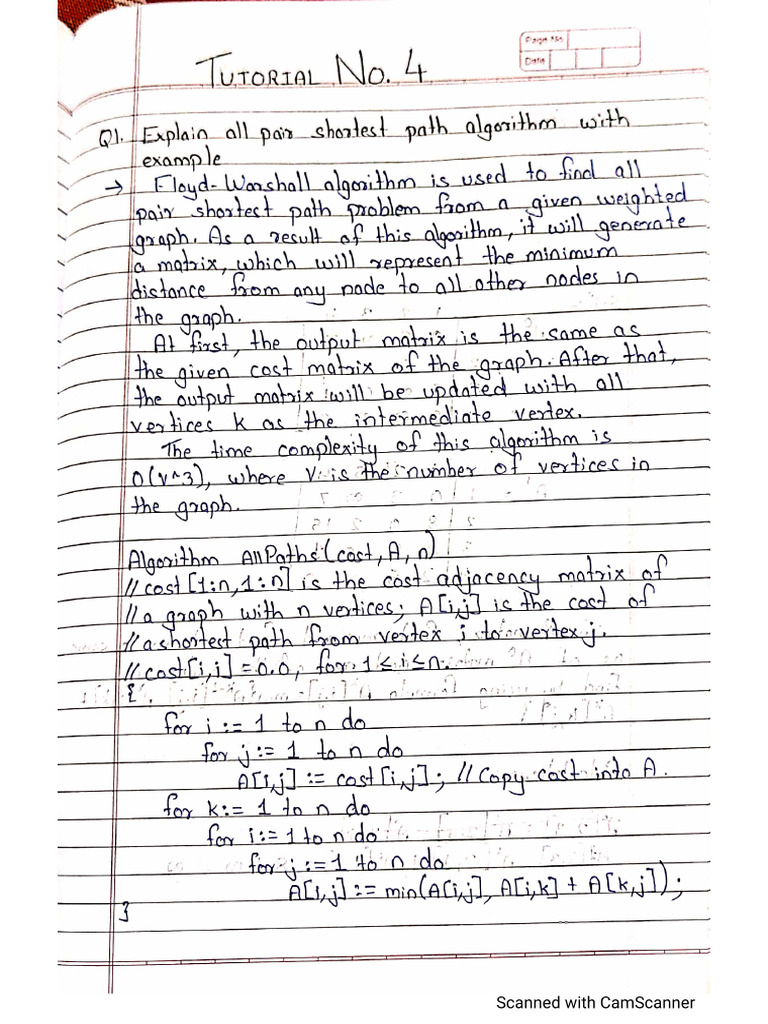 Page No.
Date
TUTORIAL NO. 4
Q1. Explain all pair shortest path algorithm with
example
→ Floyd-Warshall algorithm is used to find all
pair shortest path problem from a given weighted
graph. As a result of this algorithm, it will generate
a matrix, which will represent the minimum
distance from any node to all other nodes in
the graph.
At first, the output matrix is the same as
the given cost matrix of the graph. After that,
the output matrix will be updated with all
vertices k as the intermediate vertex.
The time complexity of this algorithm is
O(V^3), where V is the number of vertices in
the graph.
Algorithm AllPaths(cost, A, n)
// cost [1:n, 1:n] is the cost adjacency matrix of
// a graph with n vertices; A[i,j] is the cost of
// a shortest path from vertex i to vertex j.
// cost[i,i] = 0.0, for 1 ≤ i ≤ n.
{
for i := 1 to n do
for j := 1 to n do
A[i,j] := cost[i,j]; // Copy cost into A.
for k := 1 to n do
for i := 1 to n do
for j := 1 to n do
A[i,j] := min(A[i,j], A[i,k] + A[k,j]);
}
Scanned with CamScanner